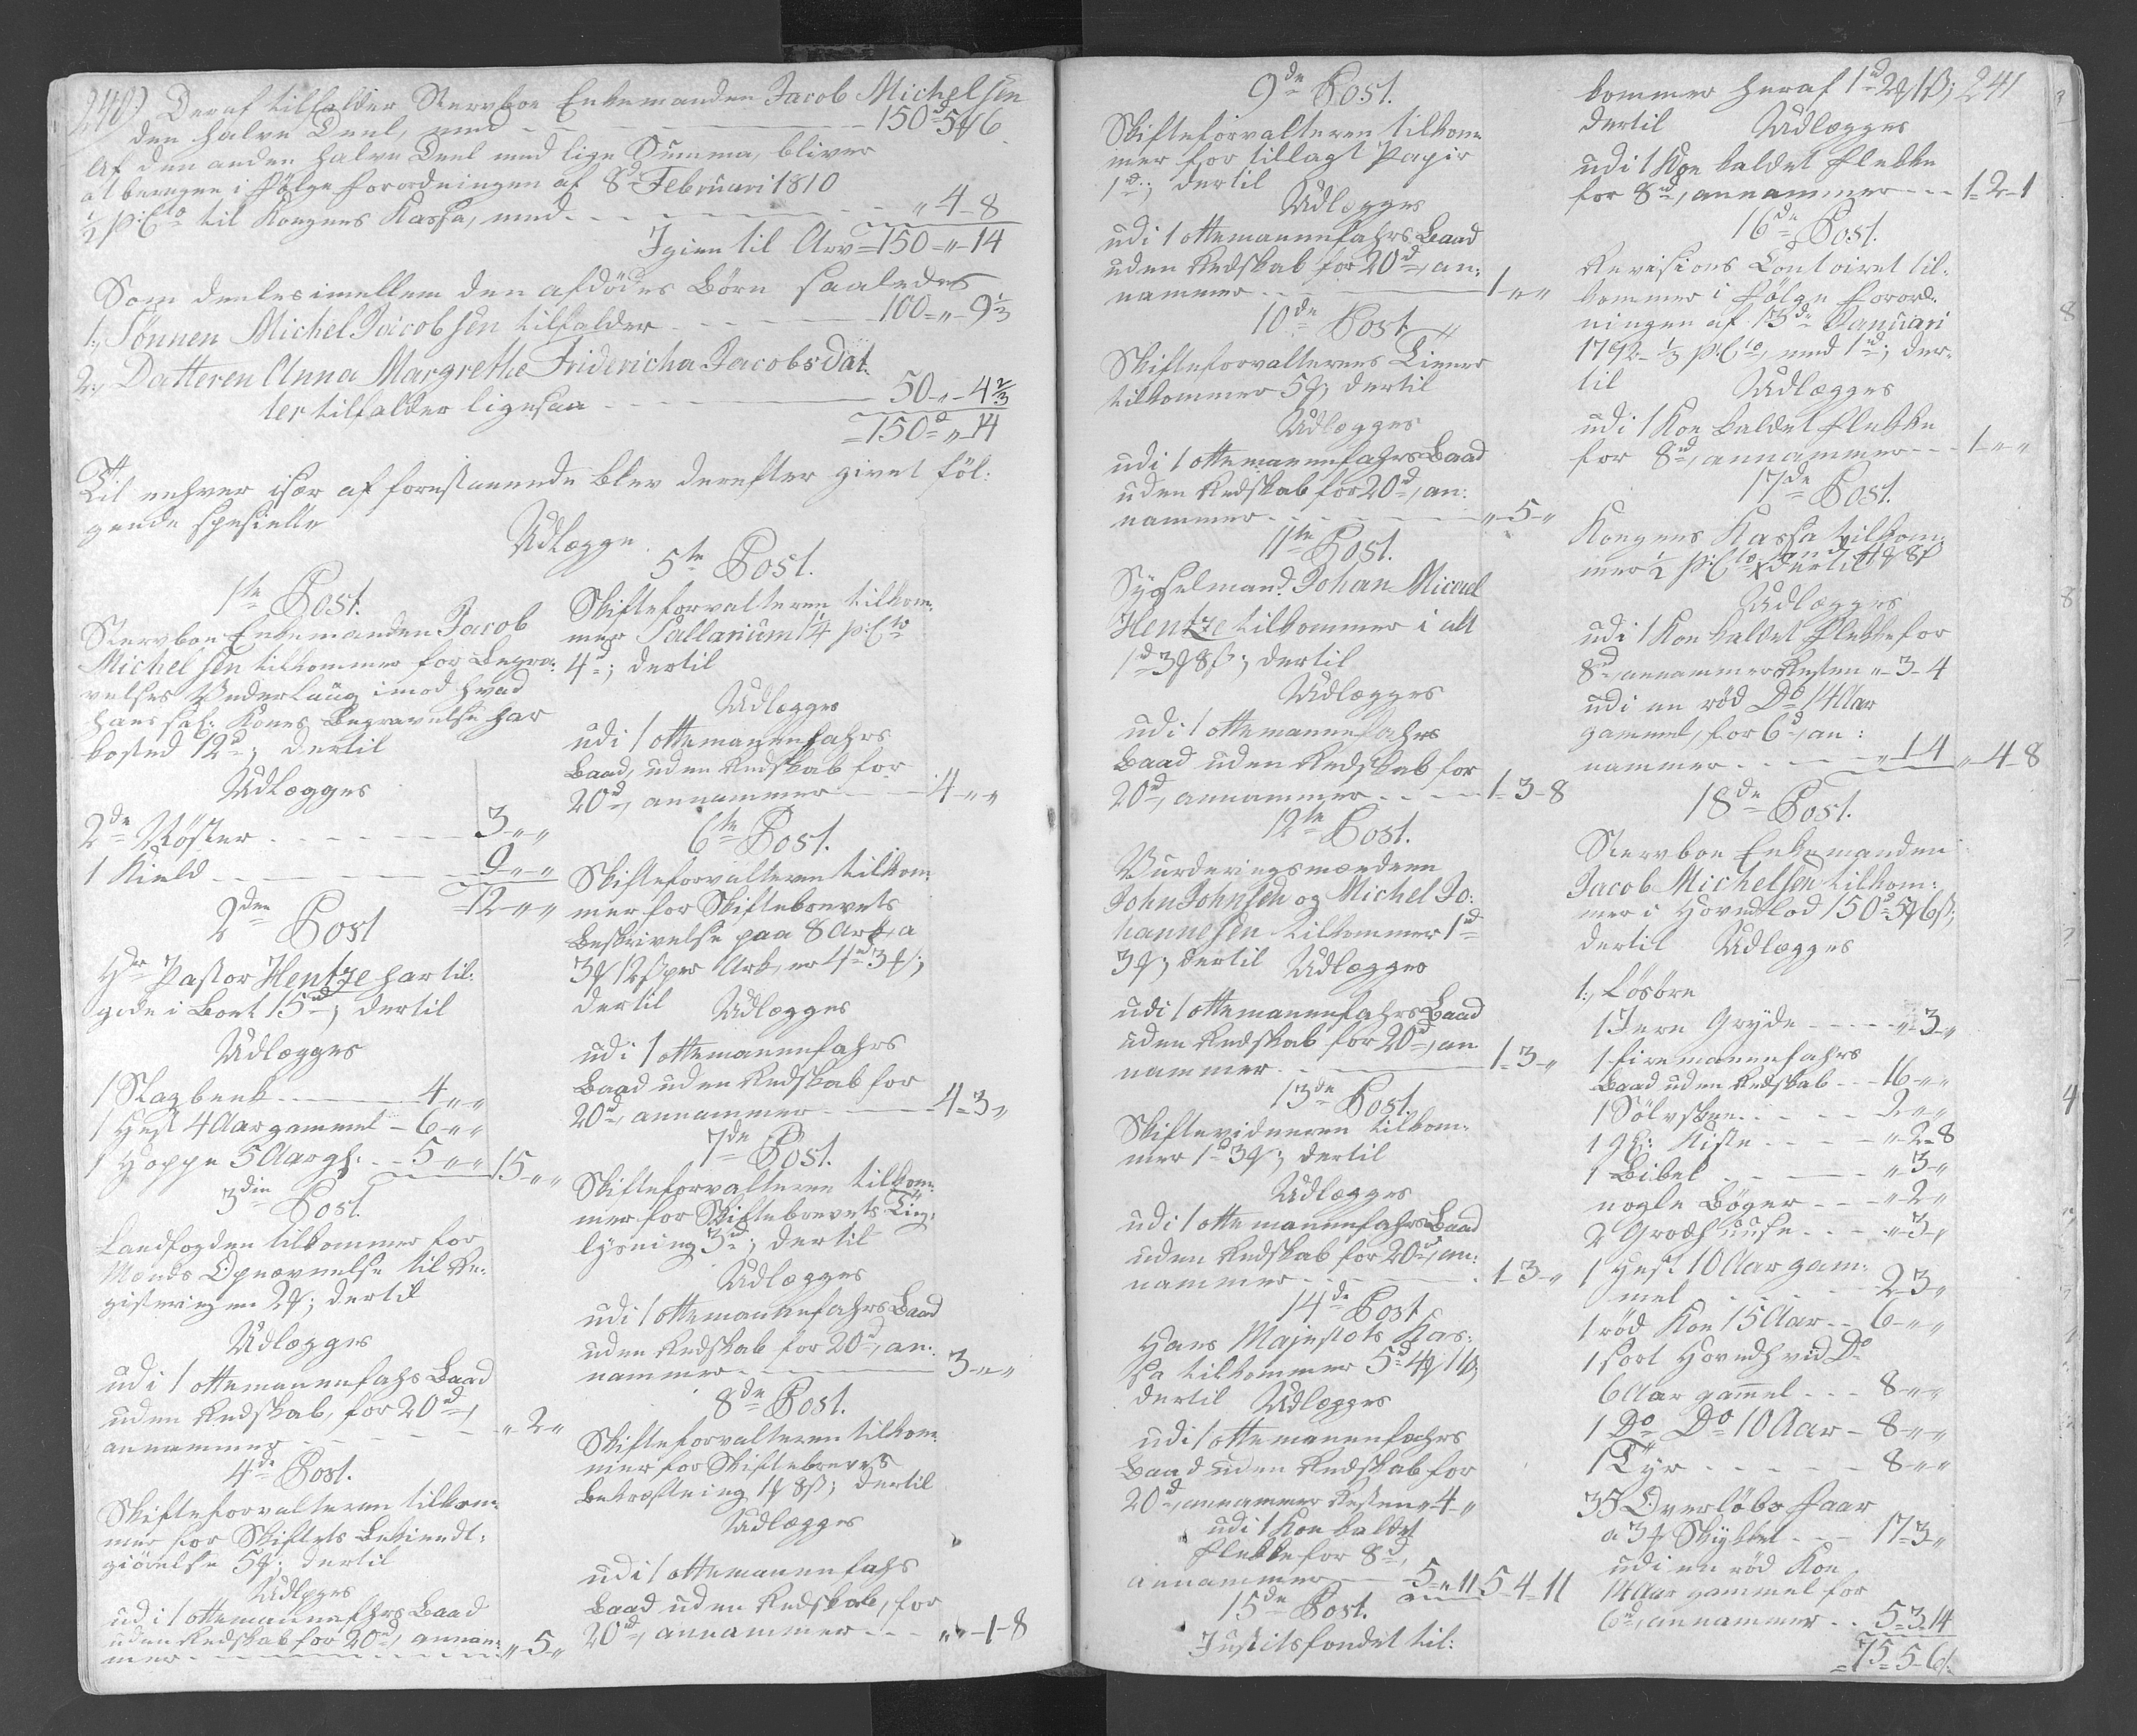 240) Deraf tilfalder Stervboe Enkemanden Jacob Michelsen
den halve Deel, med - - - 150d 5ȼ 6
Af den anden halve Deel med lige Summa, bliver
at beregne i Følge Forordningen af 8d Februari 1810
½ p:Cto til Kongens Kassa, med - - - „ 4 - 8
Igien til Arv = 150 - „ - 14
Som deeles imellem den afdødes Børn saaledes
1, Sønnen Michel Jacobsen tilfalder - - - 100 = „ - 9⅓
2, Datteren Anna Margrethe Fridericha Jacobsdat-
ter tilfalder ligesaa - - - 50 - „ - 4⅔
= 150d „ - 14
Til enhver især af forestaaende blev derefter givet føl:
gende specielle
Udlægge.
1te Post.
Stervboe Enkemanden Jacob
Michelsen tilkommer for Begra:
velses Vederlaug imod hvad
hans sal: Kones Begravelse har
kosted 12d; dertil
Udlægges
2de Røster - - - 3 - „ - „
1 Kield - - - 9 - „ - „
= 12 - „ - „
2den Post
Hr Pastor Hentze har til:
gode i Boet 15d; dertil
Udlægges
1 Slagbenk - - - 4 - „ - „
1 Hest 4 Aar gammel - 6 - „ - „
1 Hoppe 5 Aar gl. - - 5 - „ - „ 15 - „ - „
3die Post.
Landfogden tilkommer for
Mænds Opnævnelse til Re-
gistreringen 2ȼ; dertil
Udlægges
udi 1 ottemannefahrs Baad
uden Redskab, for 20d,
annammer - - - „ 2 „
4de Post.
Skifteforvalteren tilkom-
mer for Skiftets Bekiendt:
giörelse 5ȼ; dertil
Udlægges
udi 1 ottemannefahrs Baad
uden Redskab for 20d, annam-
mer - - - „ 5 „
5te Post.
Skifteforvalteren tilkom-
mer Sallarium 1¼ p:Cto
4d; dertil
Udlægges
udi 1 ottemannefahrs
Baad, uden Redskab for
20d, annammer - - - 4 - „ - „
6te Post.
Skifteforvalteren tilkom-
mer for Skiftebrevets
Beskrivelse paa 8 Ark, a
3ȼ 12ß per Ark, er 4d 3ȼ;
dertil Udlægges
udi 1 ottemannefahrs
Baad uden Redskab for
20d, annammer - - - 4 - 3 „
7de Post.
Skifteforvalteren tilkom-
mer for Skiftebrevets Ting-
lysning 3d; dertil
Udlægges
udi 1 ottemannefahrs Baad
uden Redskab for 20d, an-
nammer - - - 3 - „ - „
8de Post.
Skifteforvalteren tilkom-
mer for Skiftebrevets
Bekræftning 1ȼ 8ß; dertil
Udlægges
udi 1 ottemannefahrs
Baad uden Redskab, for
20d, annammer - - - „ - 1 - 8
9de Post.
Skifteforvalteren tilkom-
mer for tillagt Papir
1d; dertil
Udlægges
udi 1 ottemannefahrs Baad
uden Redskab for 20d, an:
nammer - - - 1 - „ - „
10de Post
Skifteforvalterens Tiener
tilkommer 5ȼ; dertil
Udlægges
udi 1 ottemannefahrs Baad
uden Redskab for 20d, an:
nammer - - - „ - 5 - „
11te Post.
Sysselmand. Johan Micael
Hentze tilkommer i alt
1d 3ȼ 8ß; dertil
Udlægges
udi 1 ottemannefahrs
Baad uden Redskab for
20d, annammer - - - 1 - 3 - 8
12te Post.
Vurderingsmændene
John Johnsen og Michel Jo:
hannesen tilkommer 1d
3ȼ; dertil Udlægges
udi 1 ottemannefahrs Baad
uden Redskab for 20d, an
nammer - - - 1 - 3 - „
13de Post.
Skiftevidnerne tilkom-
mer 1d 3ȼ; dertil
Udlægges
udi 1 ottemannefahrs Baad
uden Redskab for 20d, an:
nammer - - - 1 - 3 - „
14de Post
Hans Majestæts Kas-
sa tilkommer 5d 4ȼ 11ß,
dertil Udlægges
udi 1 ottemannefahrs
Baad uden Redskab for
20d, annammer Resten „ 4 „
udi 1 Koe kaldet
Flekke for 8d,
annammer - - 5 - „ 11 5 - 4 - 11
15de Post.
Justitsfondet til:
kommer heraf 1d 2ȼ 1ß; 241
dertil Udlægges
udi 1 Koe kaldet Flekke
for 8d, annammer - - - 1 - 2 - 1
16de Post.
Revisions Contoiret til-
kommer i Følge Forord-
ningen af 13de Januari
1792 - ⅓ p:Cto, med 1d; der-
til Udlægges
udi 1 Koe kaldet Flekke
for 8d, annammer - - - 1 - „ - „
17de Post.
Kongens Kassa tilkom-
mer ½ p:Cto dertil 4ȼ 8ß
Udlægges
udi 1 Koe kaldet Flekke for
8d, annammer Resten „ - 3 - 4
udi en rød Do 14 Aar
gammel, for 6d, an:
nammer - - - „ 1 4 „ 4 - 8
18de Post.
Stervboe Enkemanden
Jacob Michelsen tilkom:
mer i Hovedlod 150d 5ȼ 6ß;
dertil Udlægges
1, Løsøre
1 Jern Gryde - - - „ - 3 - „
1 firemannefahrs
Baad uden Redskab - - - 16 - „ - „
1 Sölvskee - - - 2 - „ - „
1 gl: Kiste - - - „ - 2 - 8
1 Bibel - - - „ 3 „
nogle Bøger - - - „ 2 „
2 Grodhuuse - - - „ 3 „
1 Hest 10 Aar gam-
mel - - - 2 - 3 „
1 rød Koe 15 Aar - - 6 - „ - „
1 sort Hovedhvid Do
6 Aar gam̄el - - - 8 - „ - „
1 Do Do 10 Aar - 8 - „ - „
1 Tyr - - - 8 - „ - „
35 Overløbs Faar
a 3ȼ Stykket - - - 17 = 3 „
udi en rød Koe
14 Aar gammel for
6d, annammer - - 5 = 3 - 14
= 75 = 5 - 6